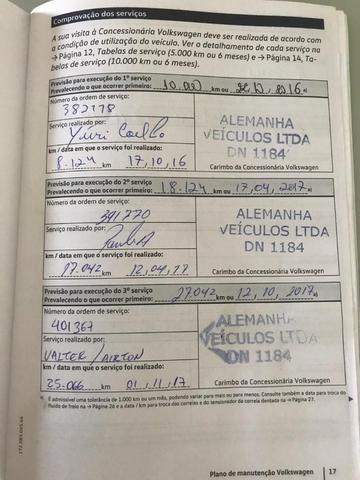 Comprovação dos serviços
A sua visita à Concessionária Volkswagen deve ser realizada de acordo com
a condição de utilização do veículo. Ver o detalhamento de cada serviço na
→Página 12, Tabelas de serviço (5.000 km ou 6 meses) e →Página 14, Ta-
belas de serviço (10.000 km ou 6 meses).
Previsão para execução do 1º serviço
Prevalecendo o que ocorrer primeiro: 10.000 km ou 2016 a)
Número da ordem de serviço:
382178
Serviço realizado por:
Yuri Coelho
km / data em que o serviço foi realizado:
8.124 km 17,10,16
ALEMANHA
VEÍCULOS LTDA
DN 1184
Carimbo da Concessionária Volkswagen
Previsão para execução do 2º serviço
Prevalecendo o que ocorrer primeiro: 18.124 km ou 17,04,2017 a)
Número da ordem de serviço:
391770
Serviço realizado por:
km / data em que o serviço foi realizado:
17.042 km 12,04,17
ALEMANHA
VEÍCULOS LTDA
DN 1184
Carimbo da Concessionária Volkswagen
Previsão para execução do 3º serviço
Prevalecendo o que ocorrer primeiro: 27.042 km ou 12,10,2017 a)
Número da ordem de serviço:
401367
Serviço realizado por:
VALTER / AIRTON
km / data em que o serviço foi realizado:
25.066 km 01,11,17
ALEMANHA
VEÍCULOS LTDA
DN 1184
Carimbo da Concessionária Volkswagen
a) É admissível uma tolerância de 1.000 km ou um mês, podendo variar para mais ou para menos. Consulte também a data para troca do
fluido de freio na → Página 26 e a data / km para troca das correias e do tensionador da correia dentada na → Página 27.
Plano de manutenção Volkswagen 17